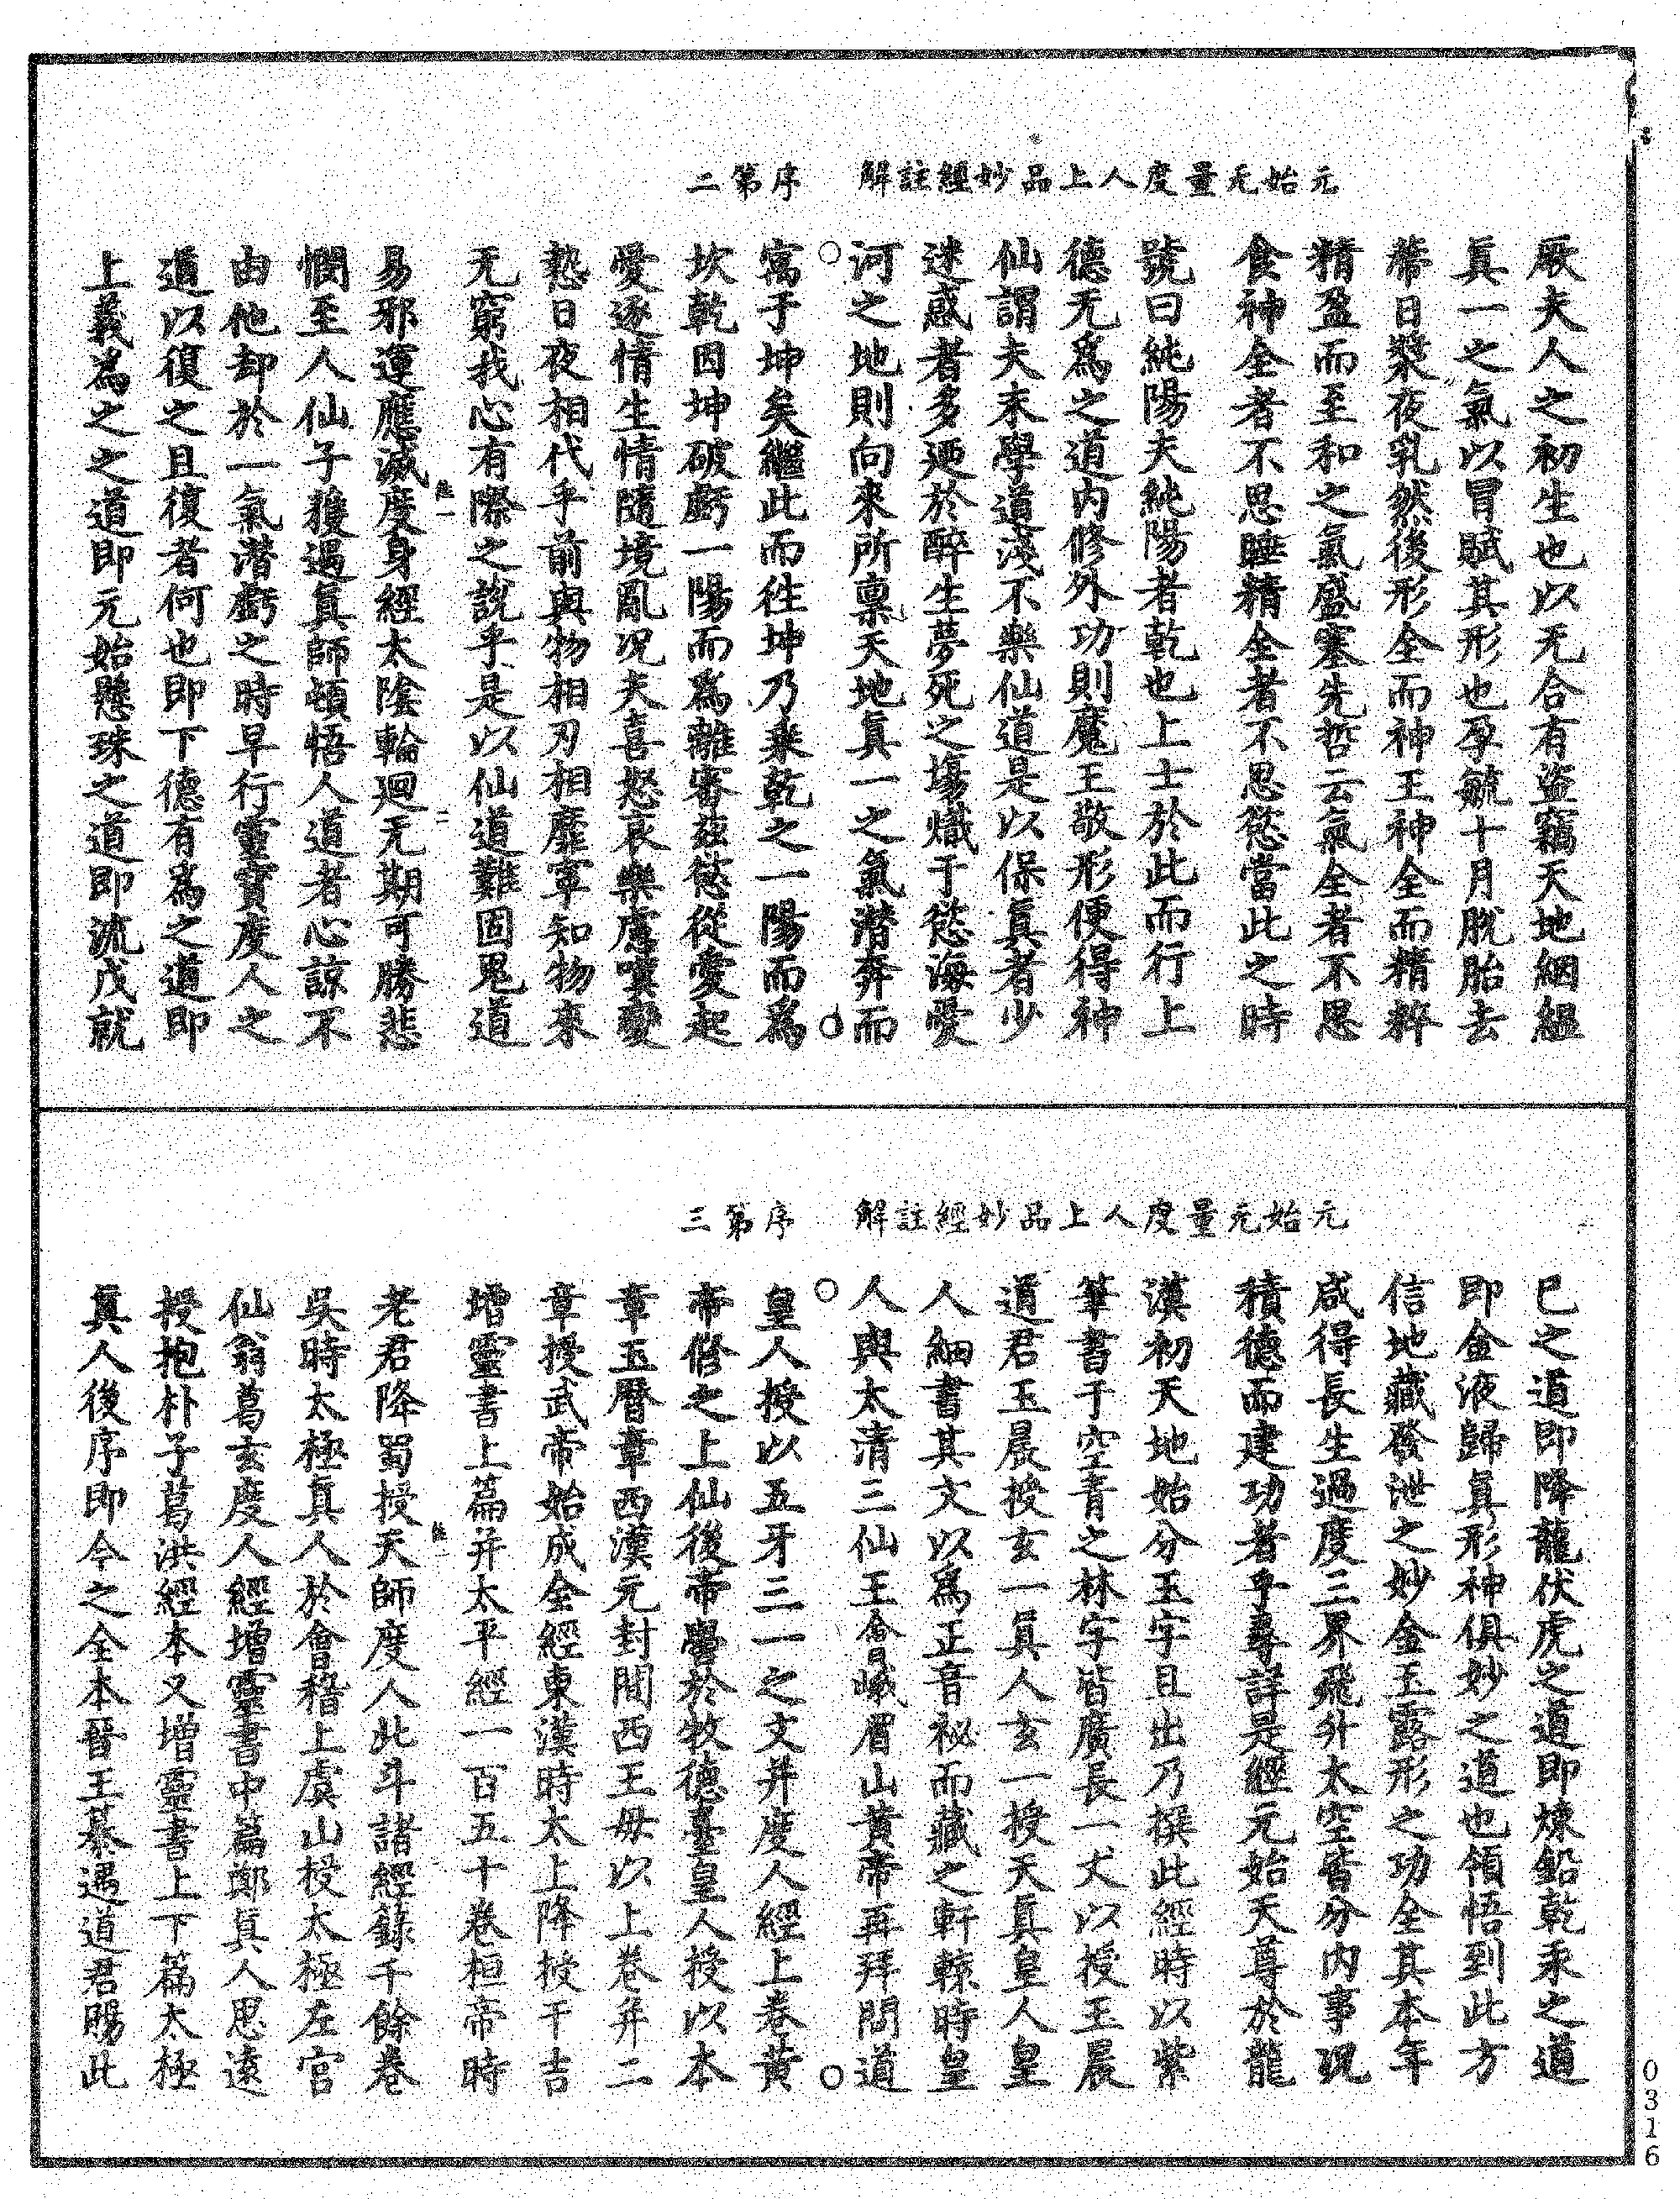 元始无量度人上品妙經註解　序第二
厥夫人之初生也以无合有盜竊天地絪縕
眞一之氣以冒賦其形也孕毓十月脫胎去
蒂日漿夜乳然後形全而神王神全而精粹
精盈而至和之氣盛塞先哲云氣全者不思
食神全者不思睡精全者不思慾當此之時
號曰純陽夫純陽者乾也上士於此而行上
德无爲之道内修外功則魔王敬形便得神
仙謂夫末學道淺不樂仙道是以保眞者少
迷惑者多迺於醉生夢死之場熾于慾海愛
河之地則向來所禀天地眞一之氣潛奔而
寓于坤矣繼此而往坤乃乘乾之一陽而爲
坎乾因坤破虧一陽而爲離審茲慾從愛起
愛逐情生情隨境亂况夫喜怒哀樂慮嘆變
慹日夜相代乎前與物相刃相靡寧知物來
无窮我心有際之說乎是以仙道難固鬼道
易邪運應滅度身經太陰輪迴无期可勝悲
憫至人仙子獲遇眞師頓悟人道者心諒不
由他却於一氣潛虧之時早行靈寶度人之
道以復之且復者何也即下德有為之道即
上義為之之道即元始懸珠之道即流戊就
元始无量度人上品妙經註解　序第三
巳之道即降龍伏虎之道即煉鉛乾汞之道
即金液歸眞形神俱妙之道也領悟到此方
信地藏發泄之妙金玉露形之功全其本年
咸得長生過度三界飛升太空皆分内事况
積德而建功者乎尋詳是經元始天尊於龍
漢初天地始分玉字且出乃撰此經時以紫
筆書于空青之林字皆廣長一丈以授玉晨
道君玉晨授玄一眞人玄一授天眞皇人皇
人細書其文以爲正音祕而藏之軒轅時皇
人與太清三仙王會峨眉山黃帝再拜問道
皇人授以五牙三一之文并度人經上卷黃
帝俻之上仙後帝嚳於牧德臺皇人授以本
章玉曆章西漢元封間西王母以上卷并二
章授武帝始成全經東漢時太上降授干吉
增靈書上篇并太平經一百五十卷桓帝時
老君降蜀授天師度人北斗諸經籙千餘卷
吳時太極眞人於會稽上虞山授太極左宫
仙翁葛玄度人經增靈書中篇鄭眞人思遠
授抱朴子葛洪經本又增靈書上下篇太極
眞人後序即今之全本晉王纂遇道君賜此
0316